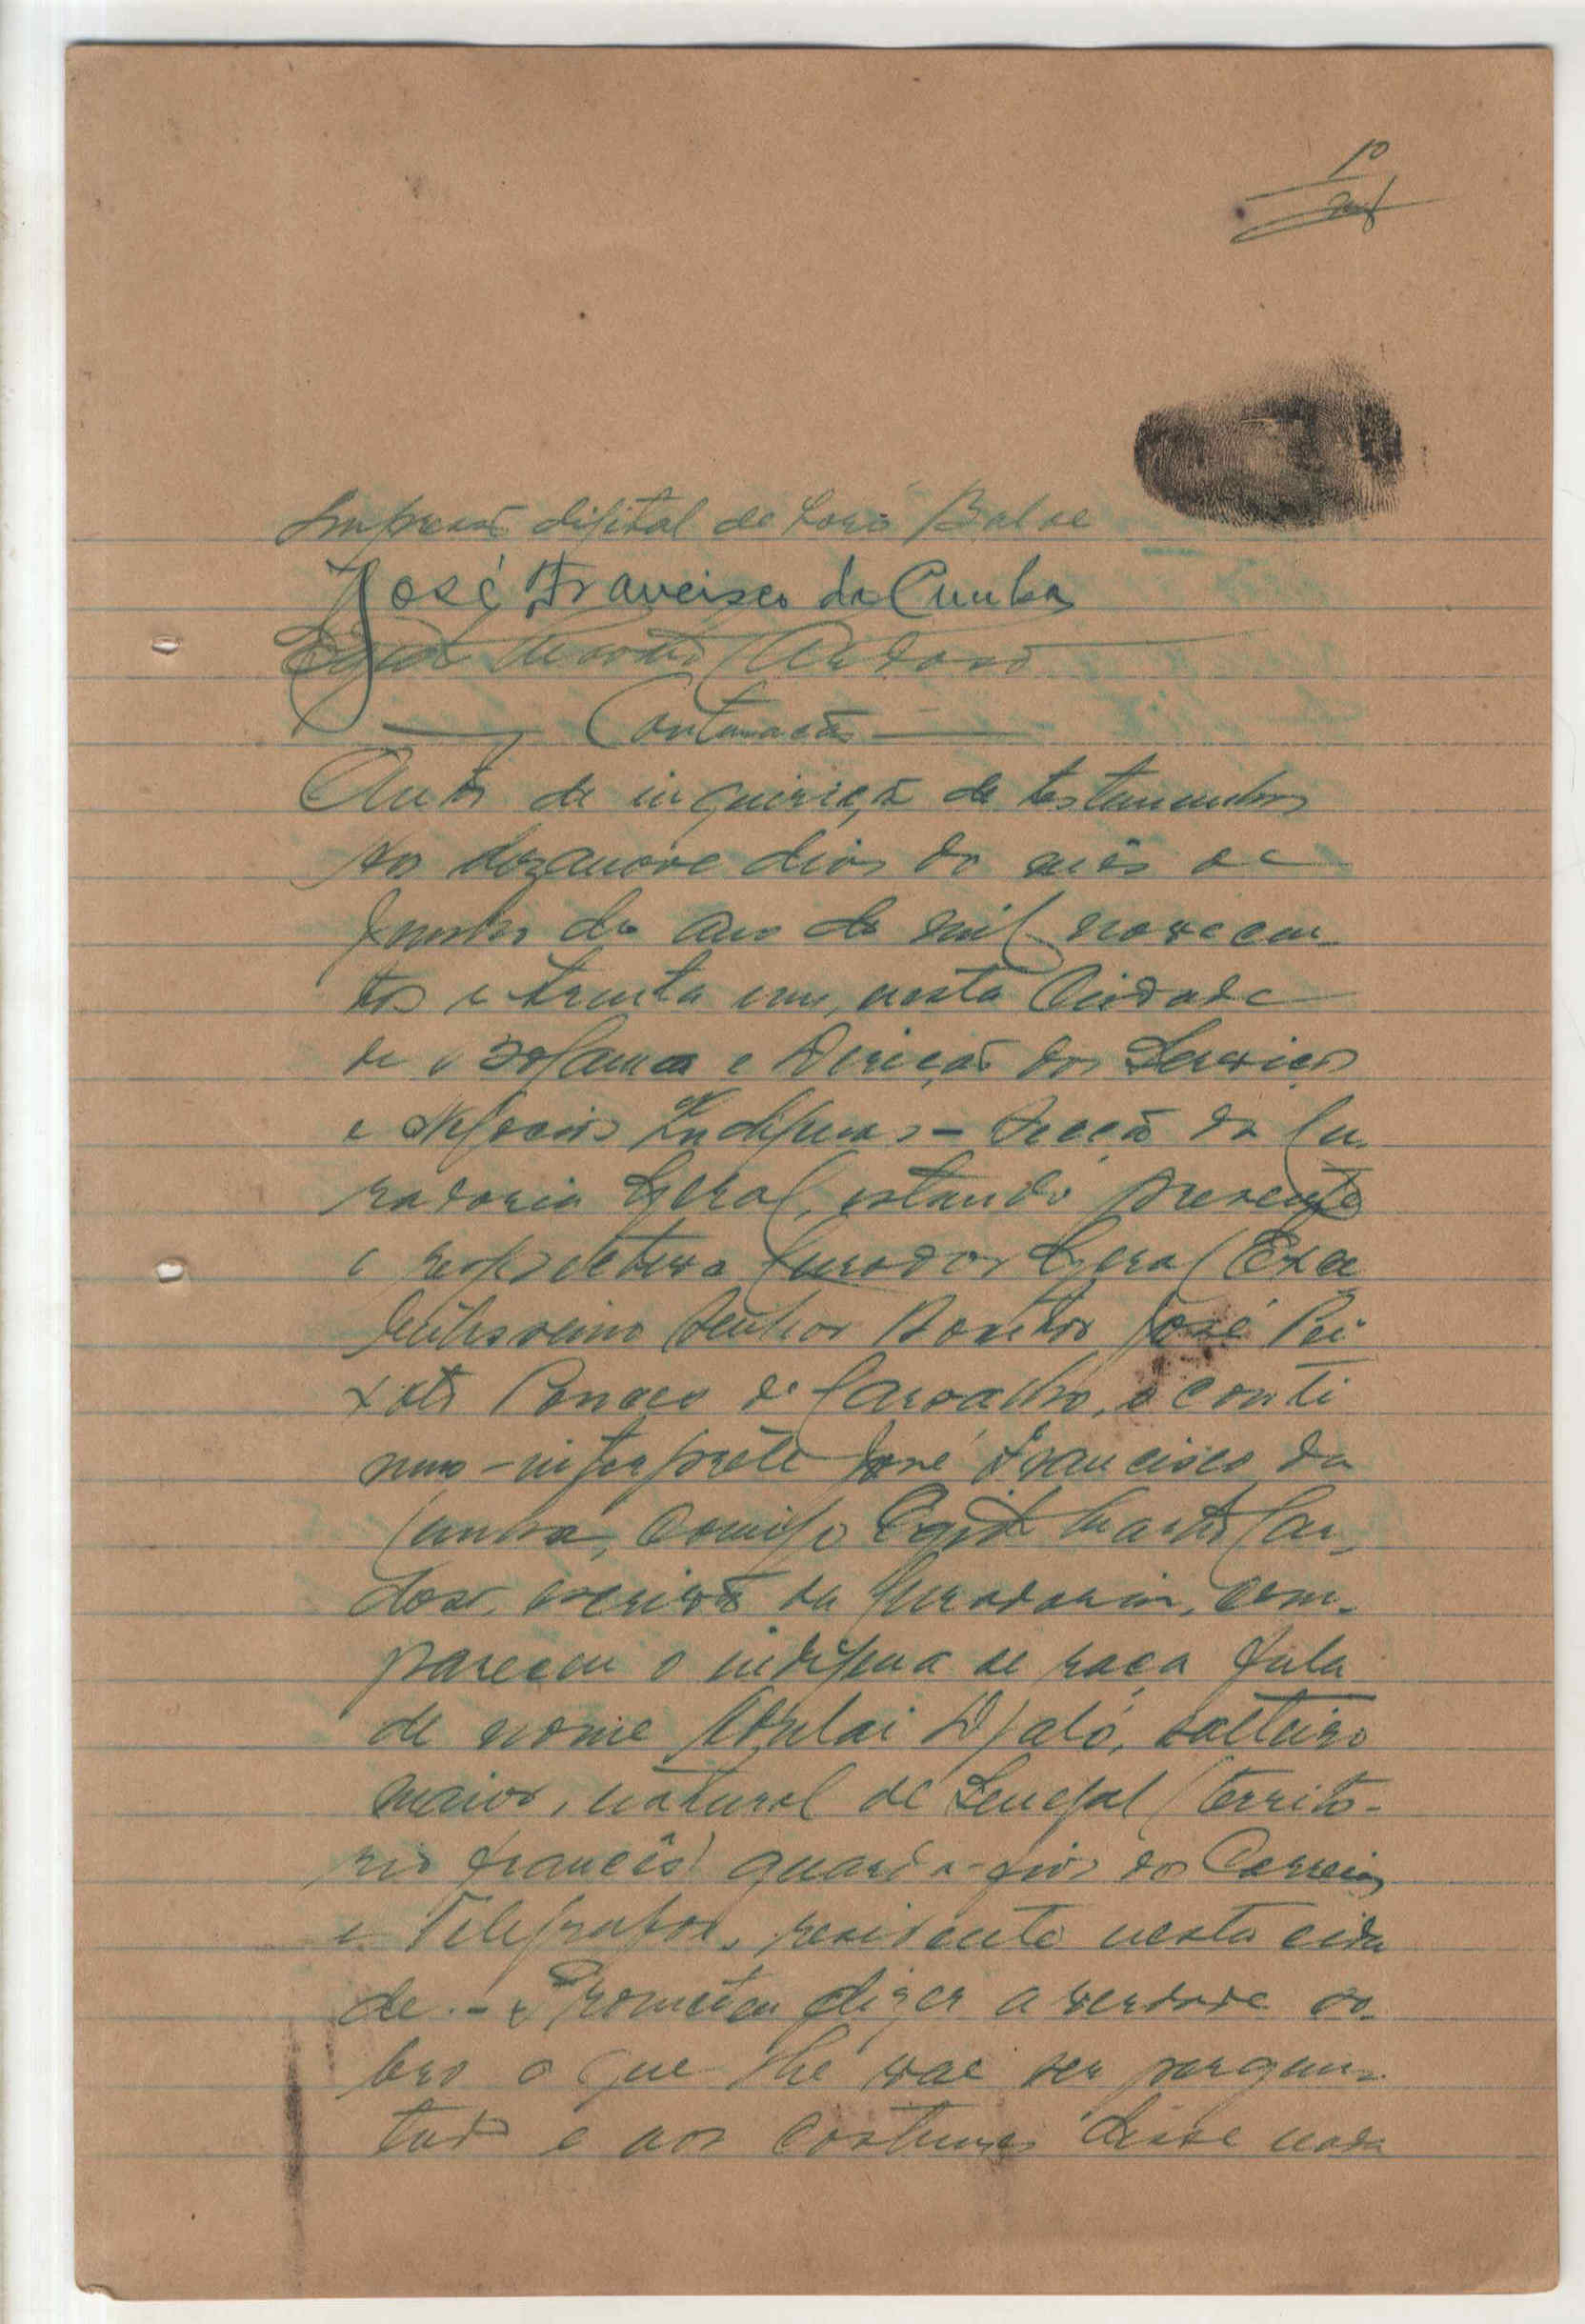 10
Impressão digital de Balde
José Francisco da Cunha
Cardoso
Continuação
Auto de inquirição de testemunhas
Aos dezanove dias do mês de
Junho do ano de mil novecen-
tos e trinta e um, nesta Cidade
de Bolama e Direcção dos Serviços
e Negocios Indigenas - Secção da Cu-
radoria Geral, estando presente
o respectivo Curador Geral Exce-
lentissimo Senhor Doutor José Pei-
xoto Ponces de Carvalho, o conti-
nuo-interprete José Francisco da
Cunha, comigo Car-
doso, escrivão da Curadoria, com-
pareceu o indigena de raça fula
de nome Djaló, solteiro
maior, natural de Senegal (territo-
rio francês) guarda-fios dos Correios
e Telegrafos, residente nesta cida
de. - Prometeu dizer a verdade so-
bre o que lhe vae ser pergun-
tado e aos costumes disse nada